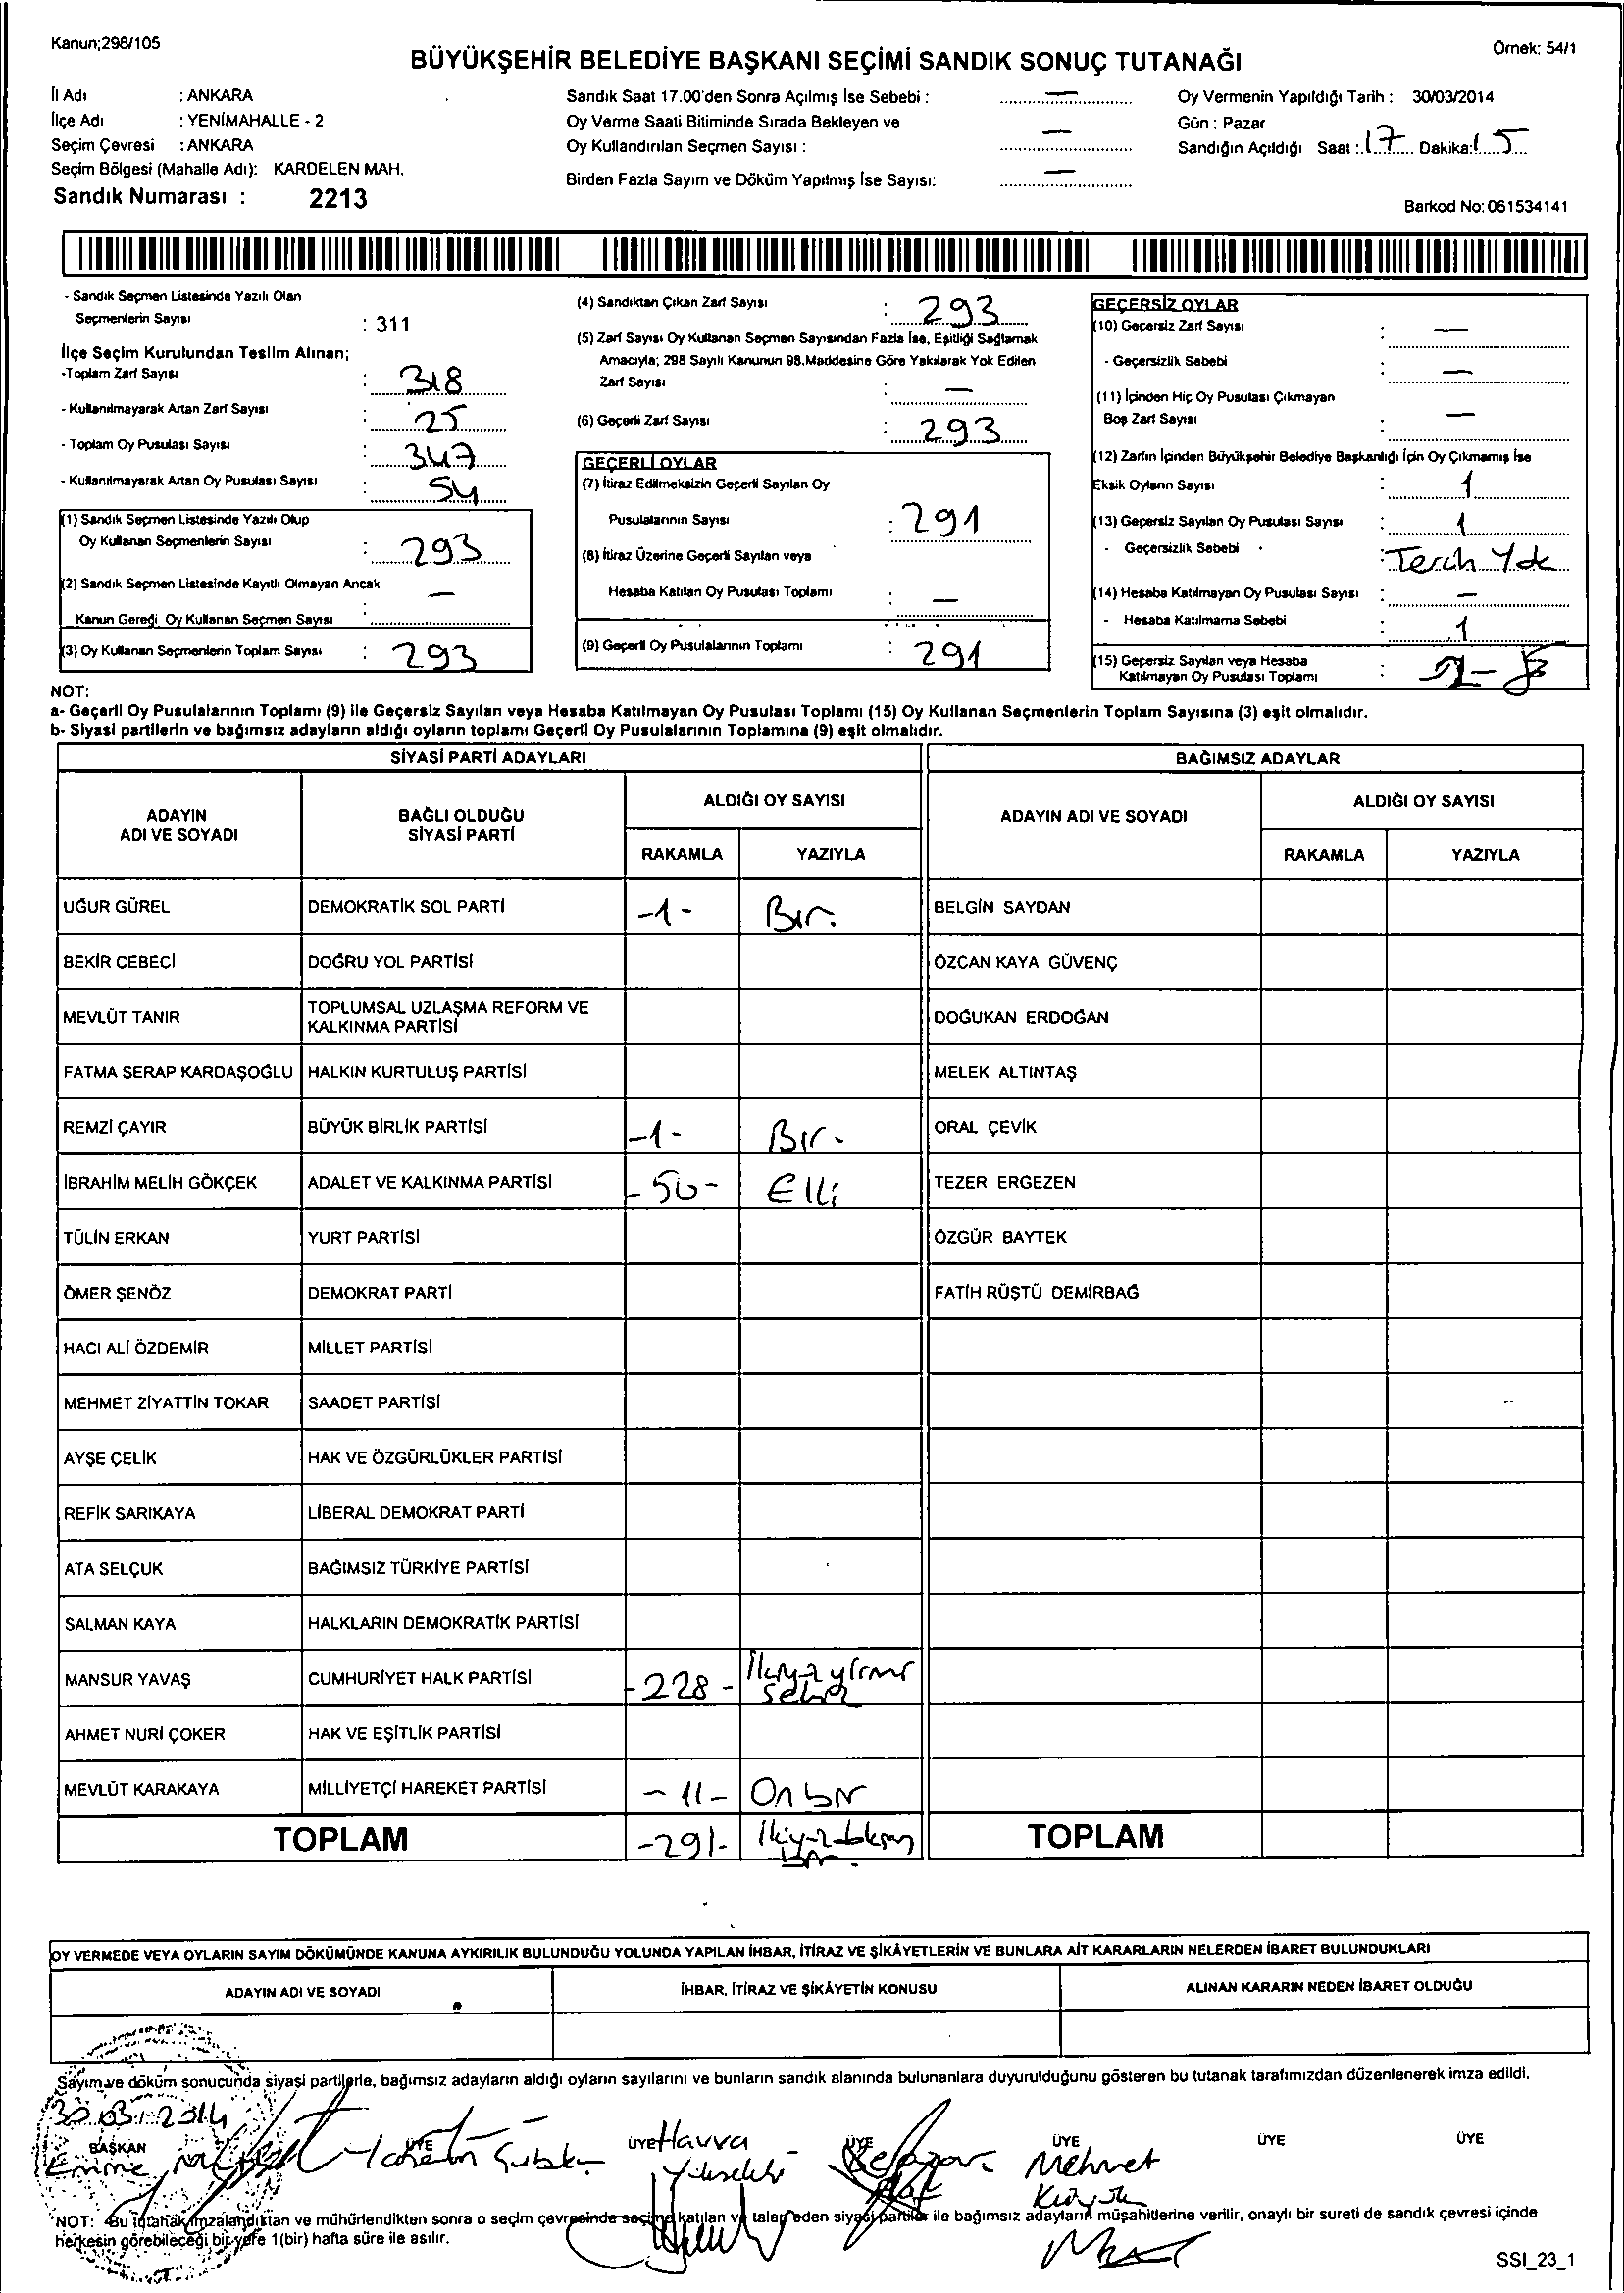 Kanun;298/105
Örnek: 54/1
BÜYÜKŞEHİR BELEDİYE BAŞKANI SEÇİMİ SANDIK SONUÇ TUTANAĞI
İl Adı : ANKARA
İlçe Adı : YENİMAHALLE - 2
Seçim Çevresi : ANKARA
Seçim Bölgesi (Mahalle Adı): KARDELEN MAH.
Sandık Numarası : 2213
Sandık Saat 17.00'den Sonra Açılmış İse Sebebi : —
Oy Verme Saati Bitiminde Sırada Bekleyen ve
Oy Kullandırılan Seçmen Sayısı : —
Birden Fazla Sayım ve Döküm Yapılmış İse Sayısı: —
Oy Vermenin Yapıldığı Tarih : 30/03/2014
Gün : Pazar
Sandığın Açıldığı Saat : 17 Dakika: 15
Barkod No: 061534141
- Sandık Seçmen Listesinde Yazılı Olan
Seçmenlerin Sayısı : 311
İlçe Seçim Kurulundan Teslim Alınan;
-Toplam Zarf Sayısı : 318
- Kullanılmayarak Artan Zarf Sayısı : 25
- Toplam Oy Pusulası Sayısı : 347
- Kullanılmayarak Artan Oy Pusulası Sayısı : 54
(1) Sandık Seçmen Listesinde Yazılı Olup
Oy Kullanan Seçmenlerin Sayısı : 293
(2) Sandık Seçmen Listesinde Kayıtlı Olmayan Ancak
Kanun Gereği Oy Kullanan Seçmen Sayısı : —
(3) Oy Kullanan Seçmenlerin Toplam Sayısı : 293
(4) Sandıktan Çıkan Zarf Sayısı : 293
(5) Zarf Sayısı Oy Kullanan Seçmen Sayısından Fazla İse, Eşitliği Sağlamak
Amacıyla; 298 Sayılı Kanunun 98.Maddesine Göre Yakılarak Yok Edilen
Zarf Sayısı : —
(6) Geçerli Zarf Sayısı : 293
GEÇERLİ OYLAR
(7) İtiraz Edilmeksizin Geçerli Sayılan Oy
Pusulalarının Sayısı : 291
(8) İtiraz Üzerine Geçerli Sayılan veya
Hesaba Katılan Oy Pusulası Toplamı : —
(9) Geçerli Oy Pusulalarının Toplamı : 291
GEÇERSİZ OYLAR
(10) Geçersiz Zarf Sayısı : —
- Geçersizlik Sebebi : —
(11) İçinden Hiç Oy Pusulası Çıkmayan
Boş Zarf Sayısı : —
(12) Zarfın İçinden Büyükşehir Belediye Başkanlığı İçin Oy Çıkmamış İse
Eksik Oyların Sayısı : 1
(13) Geçersiz Sayılan Oy Pusulası Sayısı : 1
- Geçersizlik Sebebi : Terch Yok
(14) Hesaba Katılmayan Oy Pusulası Sayısı : —
- Hesaba Katılmama Sebebi : 1
(15) Geçersiz Sayılan veya Hesaba
Katılmayan Oy Pusulası Toplamı :
NOT:
a- Geçerli Oy Pusulalarının Toplamı (9) ile Geçersiz Sayılan veya Hesaba Katılmayan Oy Pusulası Toplamı (15) Oy Kullanan Seçmenlerin Toplam Sayısına (3) eşit olmalıdır.
b- Siyasi partilerin ve bağımsız adayların aldığı oyların toplamı Geçerli Oy Pusulalarının Toplamına (9) eşit olmalıdır.
SİYASİ PARTİ ADAYLARI BAĞIMSIZ ADAYLAR
ADAYIN ADI VE SOYADI BAĞLI OLDUĞU SİYASİ PARTİ ALDIĞI OY SAYISI ADAYIN ADI VE SOYADI ALDIĞI OY SAYISI
RAKAMLA YAZIYLA RAKAMLA YAZIYLA
UĞUR GÜREL DEMOKRATİK SOL PARTİ -1- Bir. BELGİN SAYDAN
BEKİR CEBECİ DOĞRU YOL PARTİSİ ÖZCAN KAYA GÜVENÇ
MEVLÜT TANIR TOPLUMSAL UZLAŞMA REFORM VE KALKINMA PARTİSİ DOĞUKAN ERDOĞAN
FATMA SERAP KARDAŞOĞLU HALKIN KURTULUŞ PARTİSİ MELEK ALTINTAŞ
REMZİ ÇAYIR BÜYÜK BİRLİK PARTİSİ -1- Bir- ORAL ÇEVİK
İBRAHİM MELİH GÖKÇEK ADALET VE KALKINMA PARTİSİ -50- Elli TEZER ERGEZEN
TÜLİN ERKAN YURT PARTİSİ ÖZGÜR BAYTEK
ÖMER ŞENÖZ DEMOKRAT PARTİ FATİH RÜŞTÜ DEMİRBAĞ
HACI ALİ ÖZDEMİR MİLLET PARTİSİ
MEHMET ZİYATTİN TOKAR SAADET PARTİSİ
AYŞE ÇELİK HAK VE ÖZGÜRLÜKLER PARTİSİ
REFİK SARIKAYA LİBERAL DEMOKRAT PARTİ
ATA SELÇUK BAĞIMSIZ TÜRKİYE PARTİSİ
SALMAN KAYA HALKLARIN DEMOKRATİK PARTİSİ
MANSUR YAVAŞ CUMHURİYET HALK PARTİSİ -228- İkiyüzyirmi sekiz
AHMET NURİ ÇOKER HAK VE EŞİTLİK PARTİSİ
MEVLÜT KARAKAYA MİLLİYETÇİ HAREKET PARTİSİ -11- Onbir
TOPLAM -291- TOPLAM
OY VERMEDE VEYA OYLARIN SAYIM DÖKÜMÜNDE KANUNA AYKIRILIK BULUNDUĞU YOLUNDA YAPILAN İHBAR, İTİRAZ VE ŞİKÂYETLERİN VE BUNLARA AİT KARARLARIN NELERDEN İBARET BULUNDUKLARI
ADAYIN ADI VE SOYADI İHBAR, İTİRAZ VE ŞİKÂYETİN KONUSU ALINAN KARARIN NEDEN İBARET OLDUĞU
Sayım ve döküm sonucunda siyasi partilerle, bağımsız adayların aldığı oyların sayılarını ve bunların sandık alanında bulunanlara duyurulduğunu gösteren bu tutanak tarafımızdan düzenlenerek imza edildi.
30.03.2014
BAŞKAN ÜYE ÜYE ÜYE ÜYE ÜYE ÜYE
Emine Havva Mehmet
NOT: Bu tutanak imzalandıktan ve mühürlendikten sonra o seçim çevresinde seçime katılan ve talep eden siyasi partiler ile bağımsız adayların müşahitlerine verilir, onaylı bir sureti de sandık çevresi içinde
herkesin görebileceği bir yere 1(bir) hafta süre ile asılır.
SSI_23_1